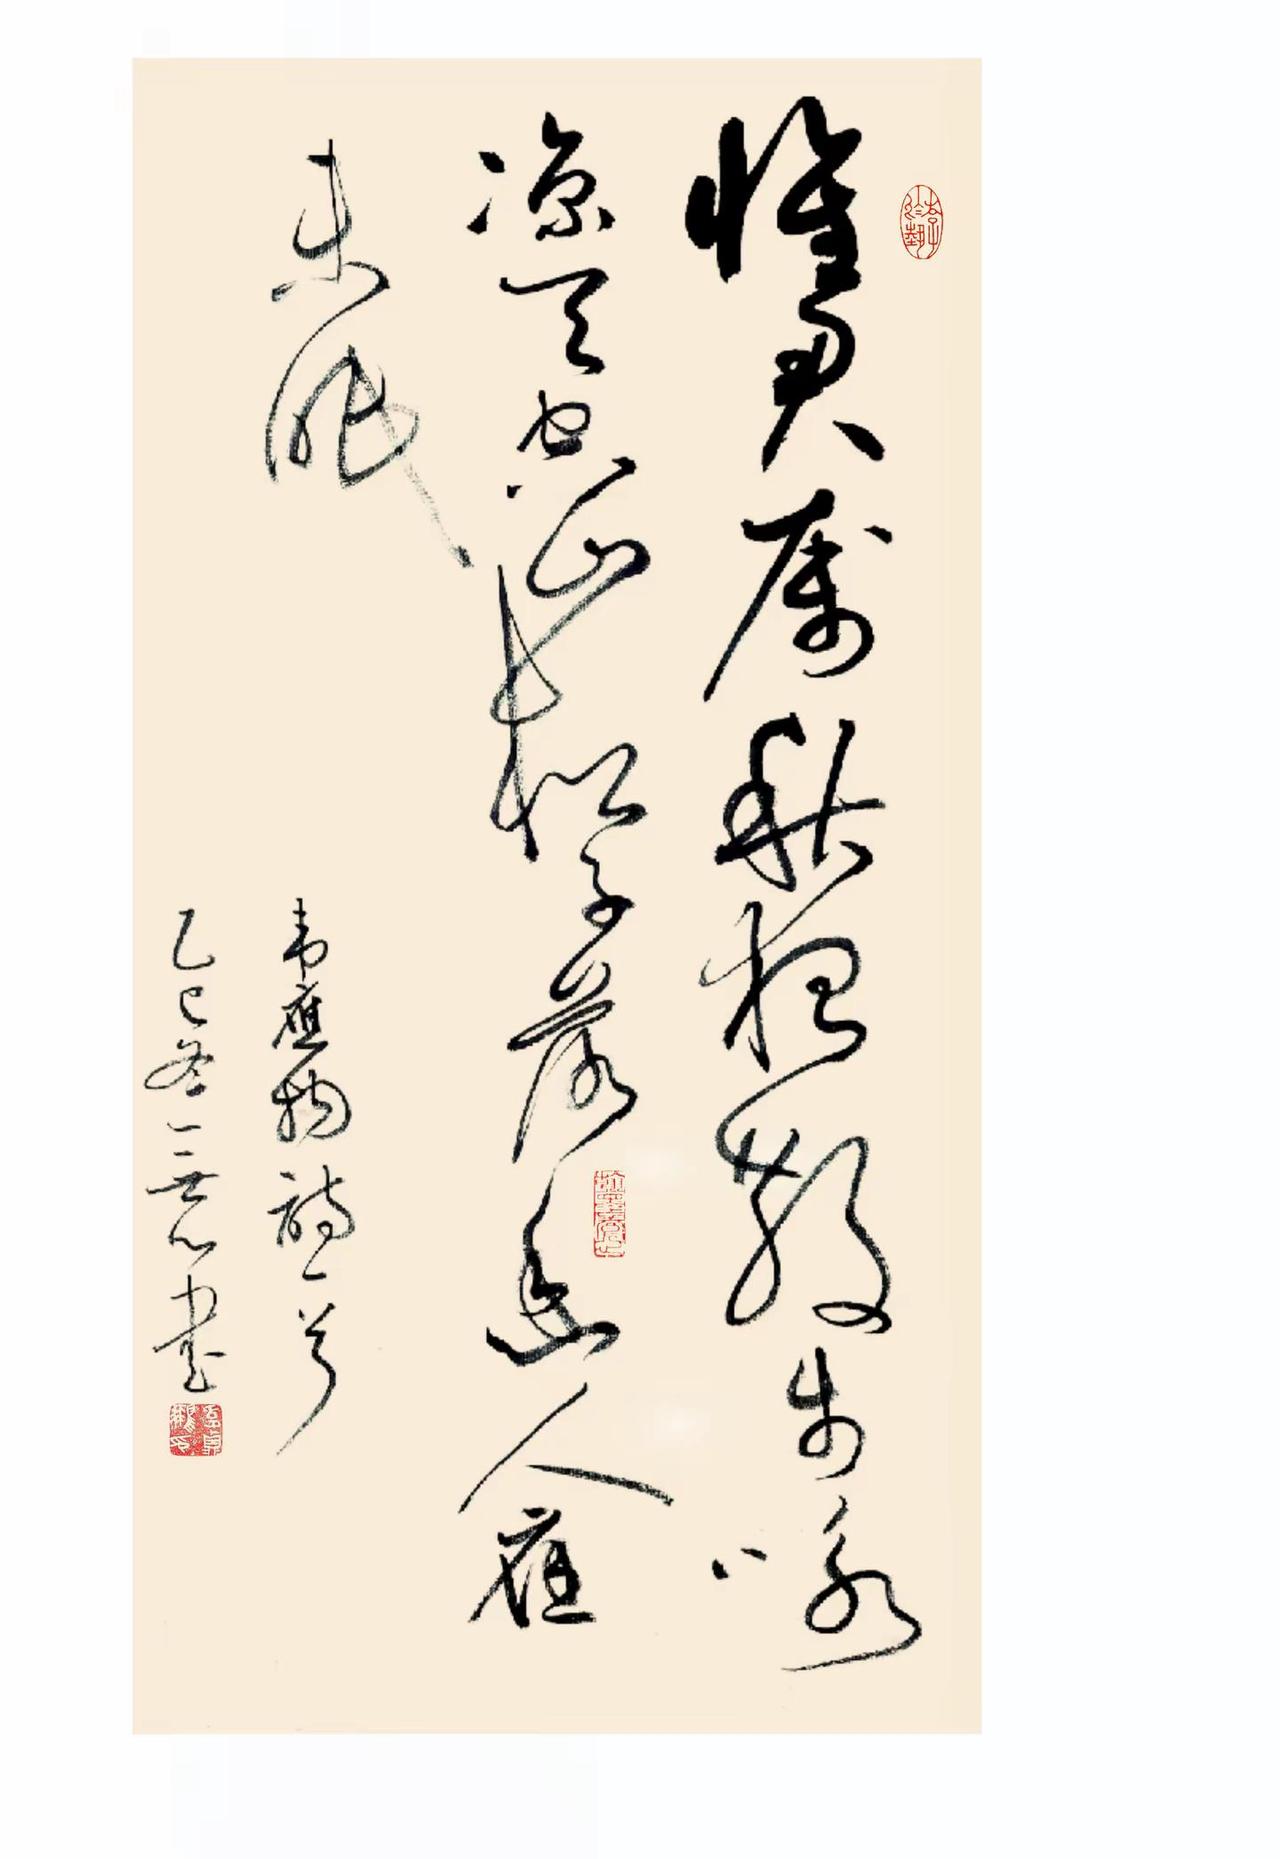 怀君属秋夜散步咏
凉天空山松子落幽人应
未眠
韦應物詩一首
乙巳冬一无心书